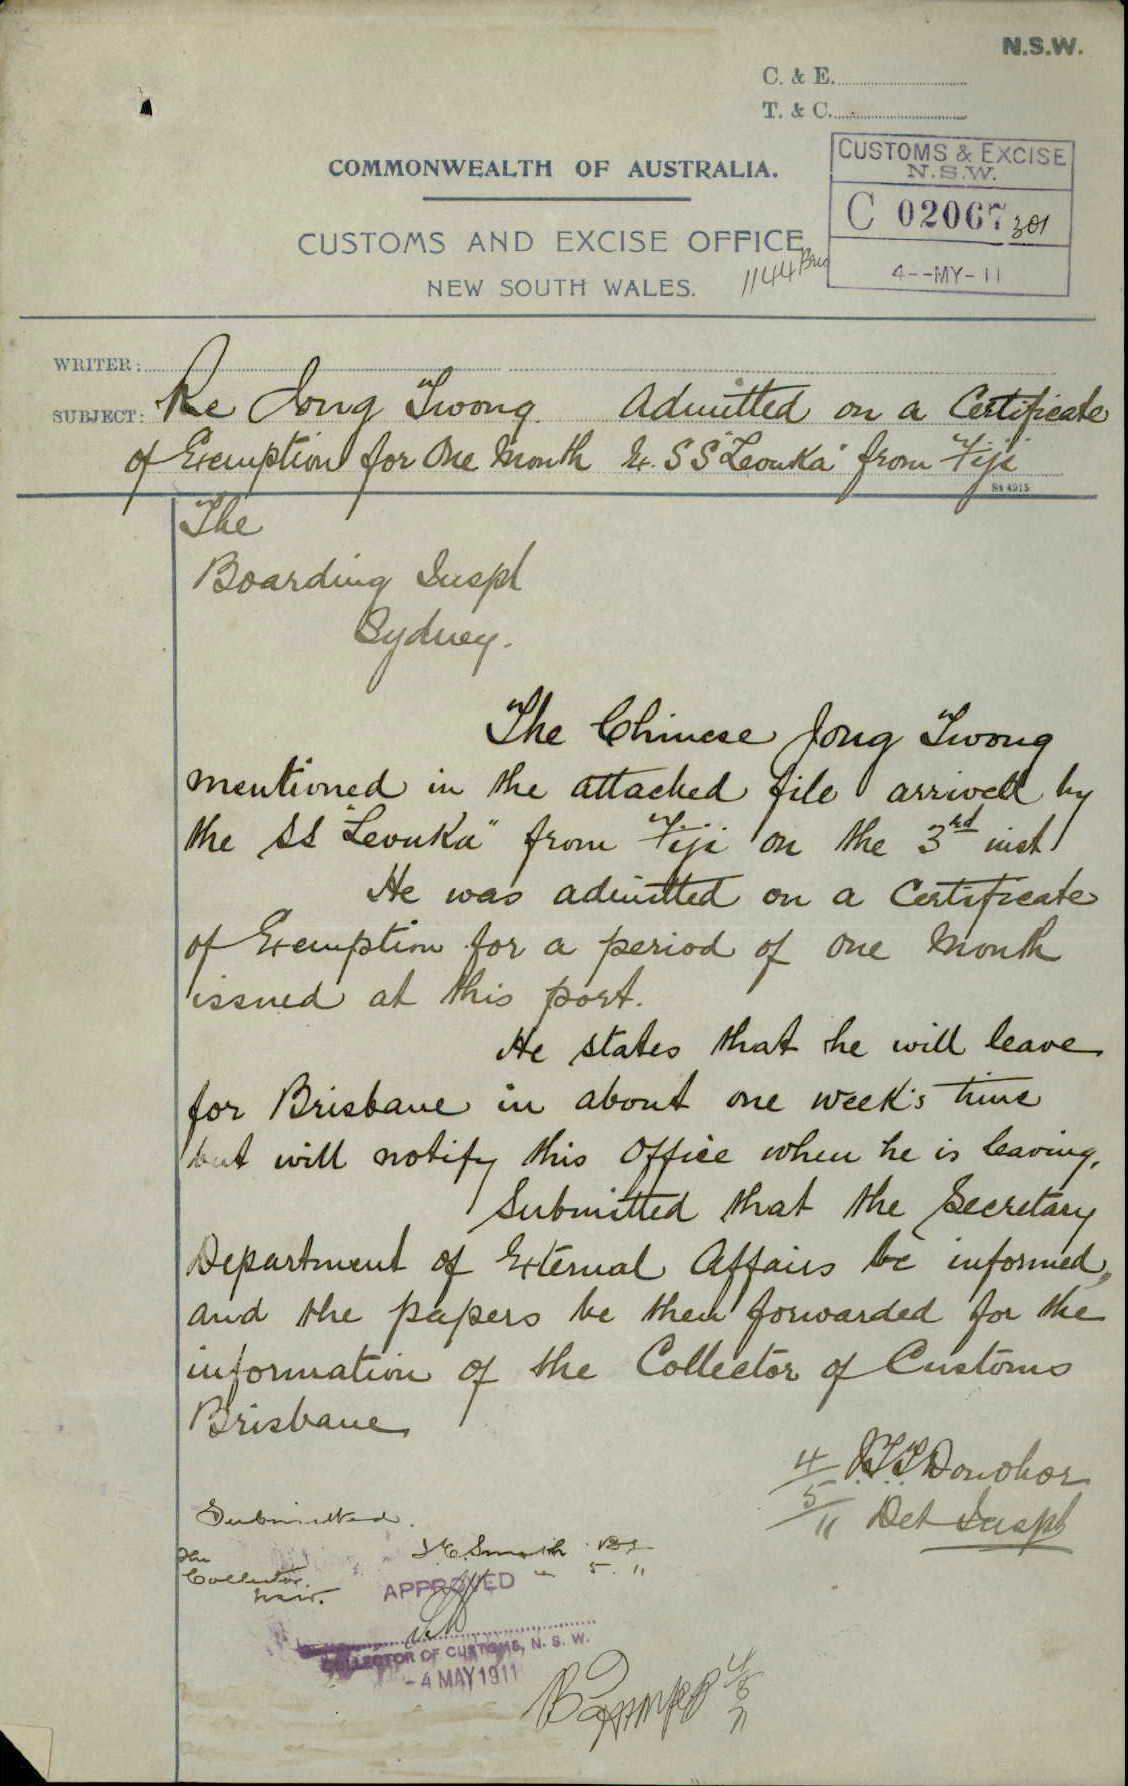 N.S.W.
C. & E.
T. & C.
COMMONWEALTH OF AUSTRALIA.
CUSTOMS & EXCISE
N.S.W.
C 02067
301
4--MY-11
CUSTOMS AND EXCISE OFFICE,
NEW SOUTH WALES.
1144
WRITER:
SUBJECT: Re Jong Twong. Admitted on a Certificate
of Exemption for One Month Ex. SS "Levuka" from Fiji
The
Boarding Inspt
Sydney.
The Chinese Jong Twong
mentioned in the attached file arrived by
the SS "Levuka" from Fiji on the 3rd inst
He was admitted on a Certificate
of Exemption for a period of one Month
issued at this port.
He states that he will leave
for Brisbane in about one week's time
but will notify this Office when he is leaving.
Submitted that the Secretary
Department of External Affairs be informed,
and the papers be then forwarded for the
information of the Collector of Customs
Brisbane
4/5/11 Donohoe
Det Inspt
Submitted.
The
Collector.
N.S.W.
APPROVED
COLLECTOR OF CUSTOMS, N. S. W.
-4 MAY 1911
4/5/11